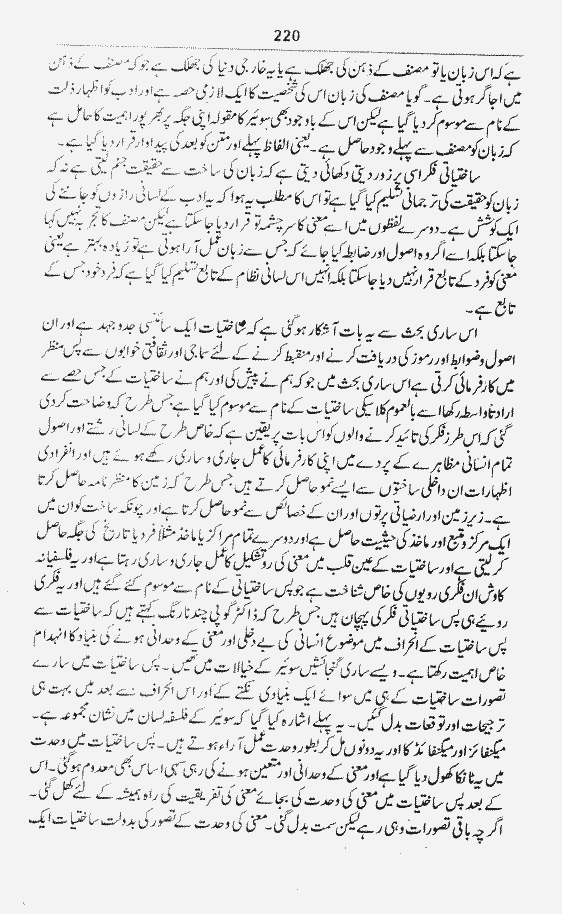 220
ہے کہ اس زبان یا تو مصنف کے ذہن کی جھلک ہے یا یہ خارجی دنیا کی جھلک ہے جو کہ مصنف کے ذہن
میں اجاگر ہوتی ہے۔ گویا مصنف کی زبان اس کی شخصیت کا ایک لازمی حصہ ہے اور ادب کو اظہار ذات
کے نام سے موسوم کر دیا گیا ہے لیکن اس کے باوجود بھی سوئیر کا مقولہ اپنی جگہ پر بھرپور اہمیت کا حامل ہے
کہ زبان کو مصنف سے پہلے وجود حاصل ہے۔ یعنی الفاظ پہلے اور متن کو بعد کی پیداوار قرار دیا گیا ہے۔
ساختیاتی فکر اسی پر زور دیتی دکھائی دیتی ہے کہ زبان کی ساخت سے حقیقت جنم لیتی ہے نہ کہ
زبان کو حقیقت کی ترجمانی تسلیم کیا گیا ہے تو اس کا مطلب یہ ہوا کہ یہ ادب کے لسانی رازوں کو جاننے کی
ایک کوشش ہے۔ دوسرے لفظوں میں اسے معنی کا سرچشمہ تو قرار دیا جا سکتا ہے لیکن مصنف کا تجربہ نہیں کہا
جا سکتا بلکہ اسے اگر وہ اصول اور ضابطہ کیا جائے کہ جس سے زبان عمل آرا ہوتی ہے تو زیادہ بہتر ہے یعنی
معنی کو فرد کے تابع قرار نہیں دیا جا سکتا بلکہ انہیں اس لسانی نظام کے تابع تسلیم کیا گیا ہے کہ فرد خود جس کے
تابع ہے۔
اس ساری بحث سے یہ بات آشکار ہو گئی ہے کہ ساختیات ایک سائنسی جدوجہد ہے اور ان
اصول وضوابط اور رموز کی دریافت کرنے اور منضبط کرنے کے لئے سماجی اور ثقافتی خوابوں سے پس منظر
میں کارفرمائی کرتی ہے اس ساری بحث میں جو کہ ہم نے پیش کی اور ہم نے ساختیات کے جس حصے سے
ارادتاً واسطہ رکھا اسے بالعموم کلاسیکی ساختیات کے نام سے موسوم کیا گیا ہے جس طرح کہ وضاحت کر دی
گئی کہ اس طرز فکر کی تائید کرنے والوں کو اس بات پر یقین ہے کہ خاص طرح کے لسانی رشتے اور اصول
تمام انسانی مظاہرے کے پردے میں اپنی کارفرمائی کا عمل جاری و ساری رکھے ہوئے ہیں اور انفرادی
اظہارات ان داخلی ساختوں سے ایسے نمو حاصل کرتے ہیں جس طرح کہ زمین کا منظر نامہ حاصل کرتا
ہے۔ زیر زمین اور ارضیاتی پرتوں اور ان کے خصائص سے نمو حاصل کرتا ہے اور چونکہ ساخت کو ان میں
ایک مرکز و منبع اور ماخذ کی حیثیت حاصل ہے اور دوسرے تمام مراکز یا ماخذ مثلاً فرد یا تاریخ کی جگہ حاصل
کر لیتی ہے اور ساختیات کے عین قلب میں معنی کی رو تشکیل کا عمل جاری و ساری رہتا ہے اور یہ فلسفیانہ
کاوش ان فکری رویوں کی خاص شناخت ہے جو پس ساختیاتی کے نام سے موسوم کئے گئے ہیں اور یہ فکری
رویئے ہی پس ساختیاتی فکر کی پہچان ہیں جس طرح کہ ڈاکٹر گوپی چند نارنگ کہتے ہیں کہ ساختیات سے
پس ساختیات کے انحراف میں موضوع انسانی کی بے دخلی اور معنی کے وحدانی ہونے کی بنیاد کا انہدام
خاص اہمیت رکھتا ہے۔ ویسے ساری گنجائشیں سوئیر کے خیالات میں تھیں۔ پس ساختیات میں سارے
تصورات ساختیات کے ہی میں سوائے ایک بنیادی نکتے کے اور اس انحراف سے بعد میں بہت ہی
ترجیحات اور توقعات بدل گئیں۔ یہ پہلے اشارہ کیا گیا کہ سوئیر کے فلسفہ لسان میں نشان مجموعہ ہے۔
میگنفائر اور میگنفائڈ کا اور یہ دونوں مل کر بطور وحدت عمل آراء ہوتے ہیں۔ پس ساختیات میں وحدت
میں یہ ٹانکا کھول دیا گیا ہے اور معنی کے وحدانی اور متعین ہونے کی رہی سہی اساس بھی معدوم ہو گئی۔ اس
کے بعد پس ساختیات میں معنی کی وحدت کی بجائے معنی کی تفریقیت کی راہ ہمیشہ کے لئے کھل گئی۔
اگرچہ باقی تصورات وہی رہے لیکن سمت بدل گئی۔ معنی کی وحدت کے تصور کی بدولت ساختیات ایک